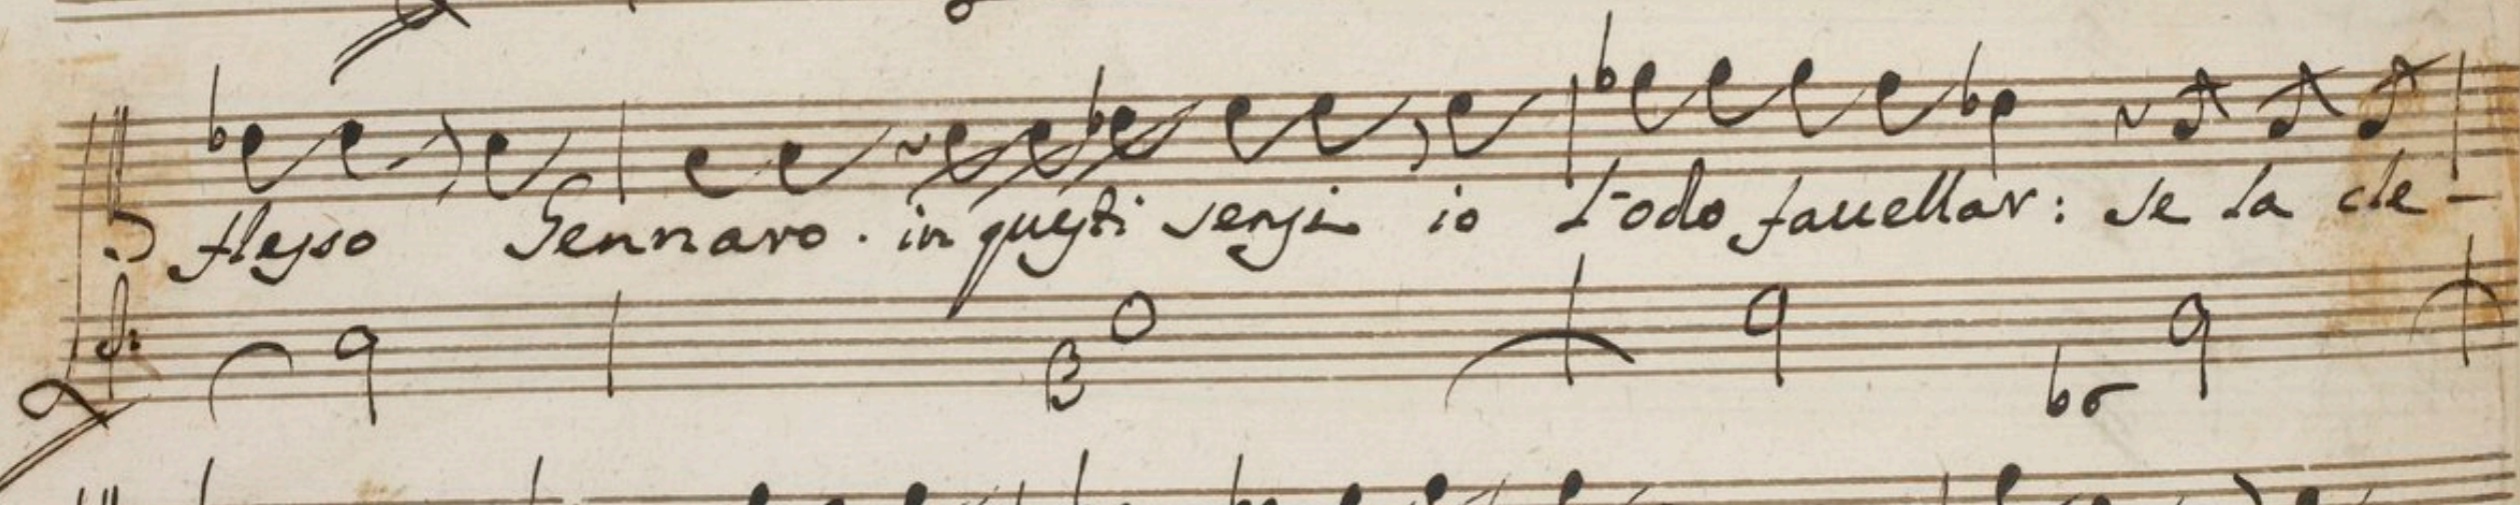 stesso Gennaro. in questi sensi io l'odo fauellar: se la cle-